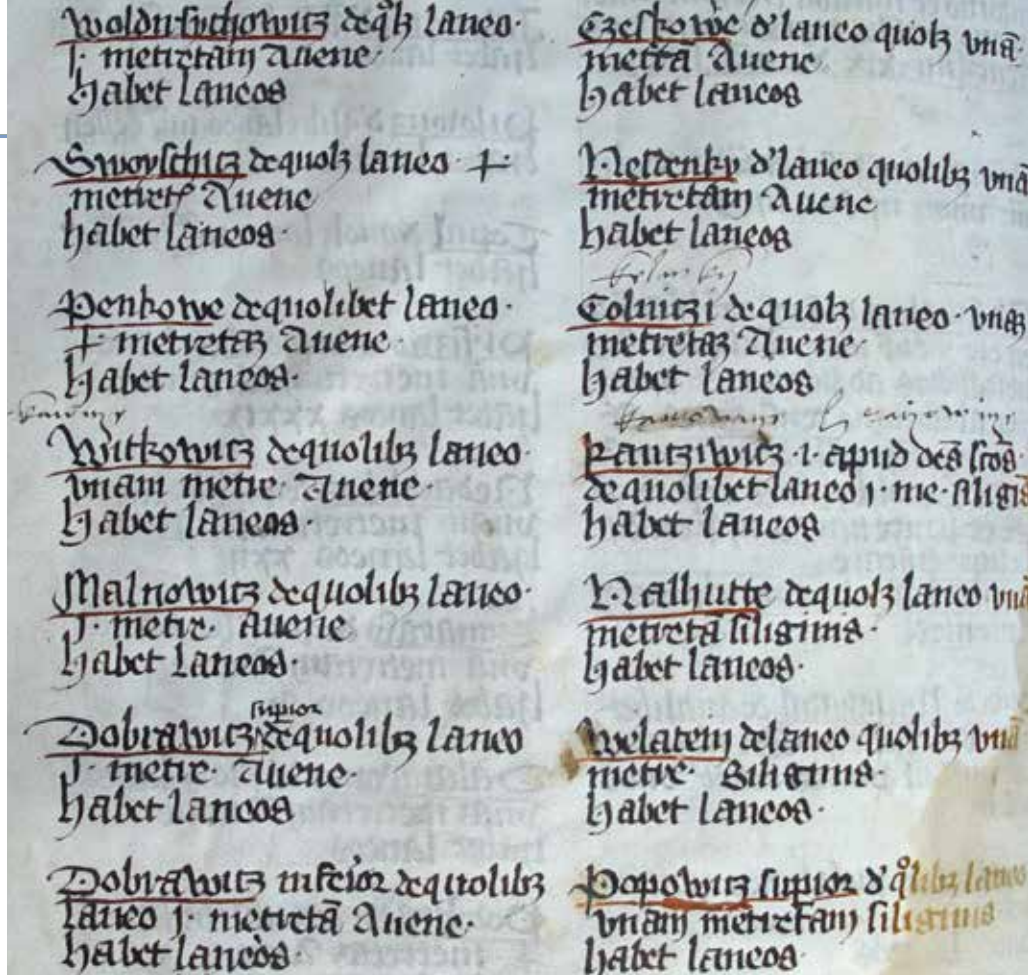 deqlꝫ laneo·
j· metretam Avene·
habet laneos
Swoyschitz dequolꝫ laneo ·
metret Avene
habet laneos
Penkowe dequolibet laneo·
metretaꝫ Avene·
habet laneos·
Witkowitz dequolibꝫ laneo·
vnam metre· Avene·
habet laneos·
Malnowitz dequolibꝫ laneo·
j· metre· Avene
habet laneos·
supior
Dobrawitz dequolibꝫ laneo
j· metre· Avene·
habet laneos
Dobrawitz inferior dequolibꝫ
laneo j· metretā Avene·
habet laneos·
Czeskowe d' laneo quolꝫ vnā
metrā Avene
habet laneos
Nesdenky d' laneo quolibꝫ vnā
metretam Avene
habet laneos
Colnitzi dequolꝫ laneo· vnaꝫ
metretaꝫ Avene·
habet laneos
Kantziwitz ·i· apud oēs scos·
dequolibet laneo j· me·
habet laneos
Nalhutte dequolꝫ laneo vnā
metretā siliginis·
habet laneos·
Welatein delaneo quolibꝫ vnā
metre· Siliginis·
habet laneos·
Popowitz supior d' qlibꝫ laneo
vnam metretam siliginis
habet laneos